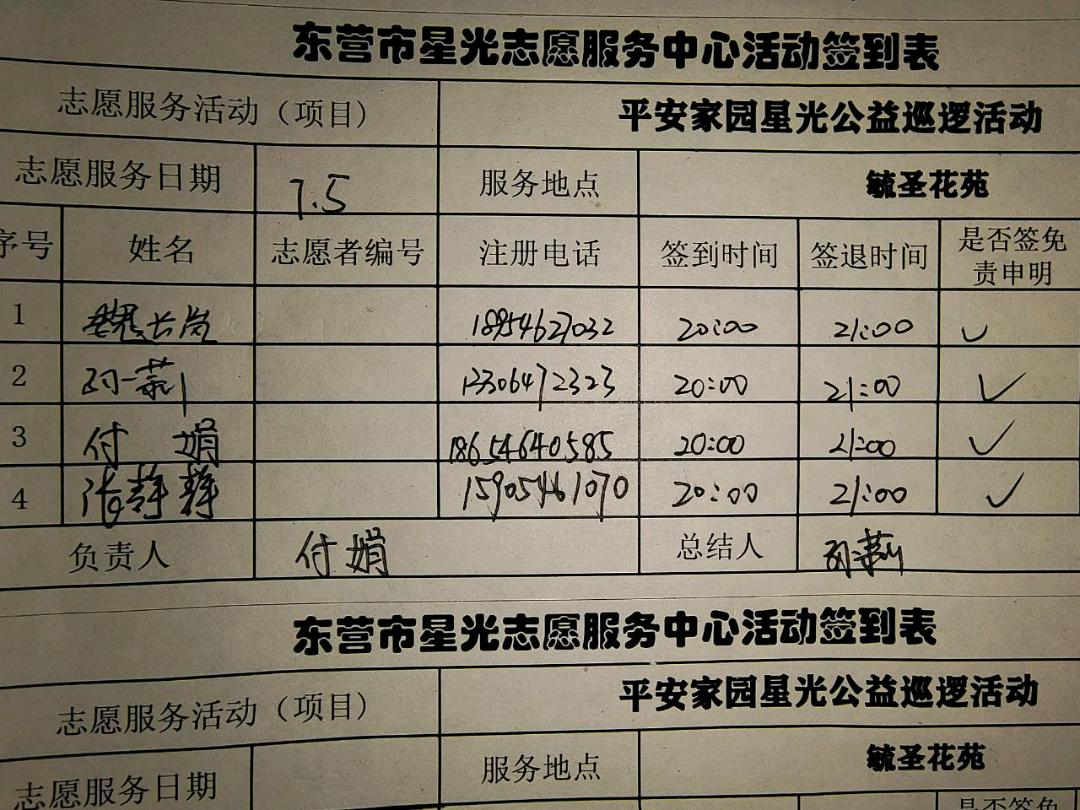 东营市星光志愿服务中心活动签到表
志愿服务活动（项目） 平安家园星光公益巡逻活动
志愿服务日期 7.5 服务地点 毓圣花苑
序号 姓名 志愿者编号 注册电话 签到时间 签退时间 是否签免责申明
1 魏长岚 18954627032 20:00 21:00 ✓
2 孙一莉 13306472323 20:00 21:00 ✓
3 付娟 18654640585 20:00 21:00 ✓
4 张静静 15905461070 20:00 21:00 ✓
负责人 付娟 总结人
东营市星光志愿服务中心活动签到表
志愿服务活动（项目） 平安家园星光公益巡逻活动
志愿服务日期 服务地点 毓圣花苑
是否签免